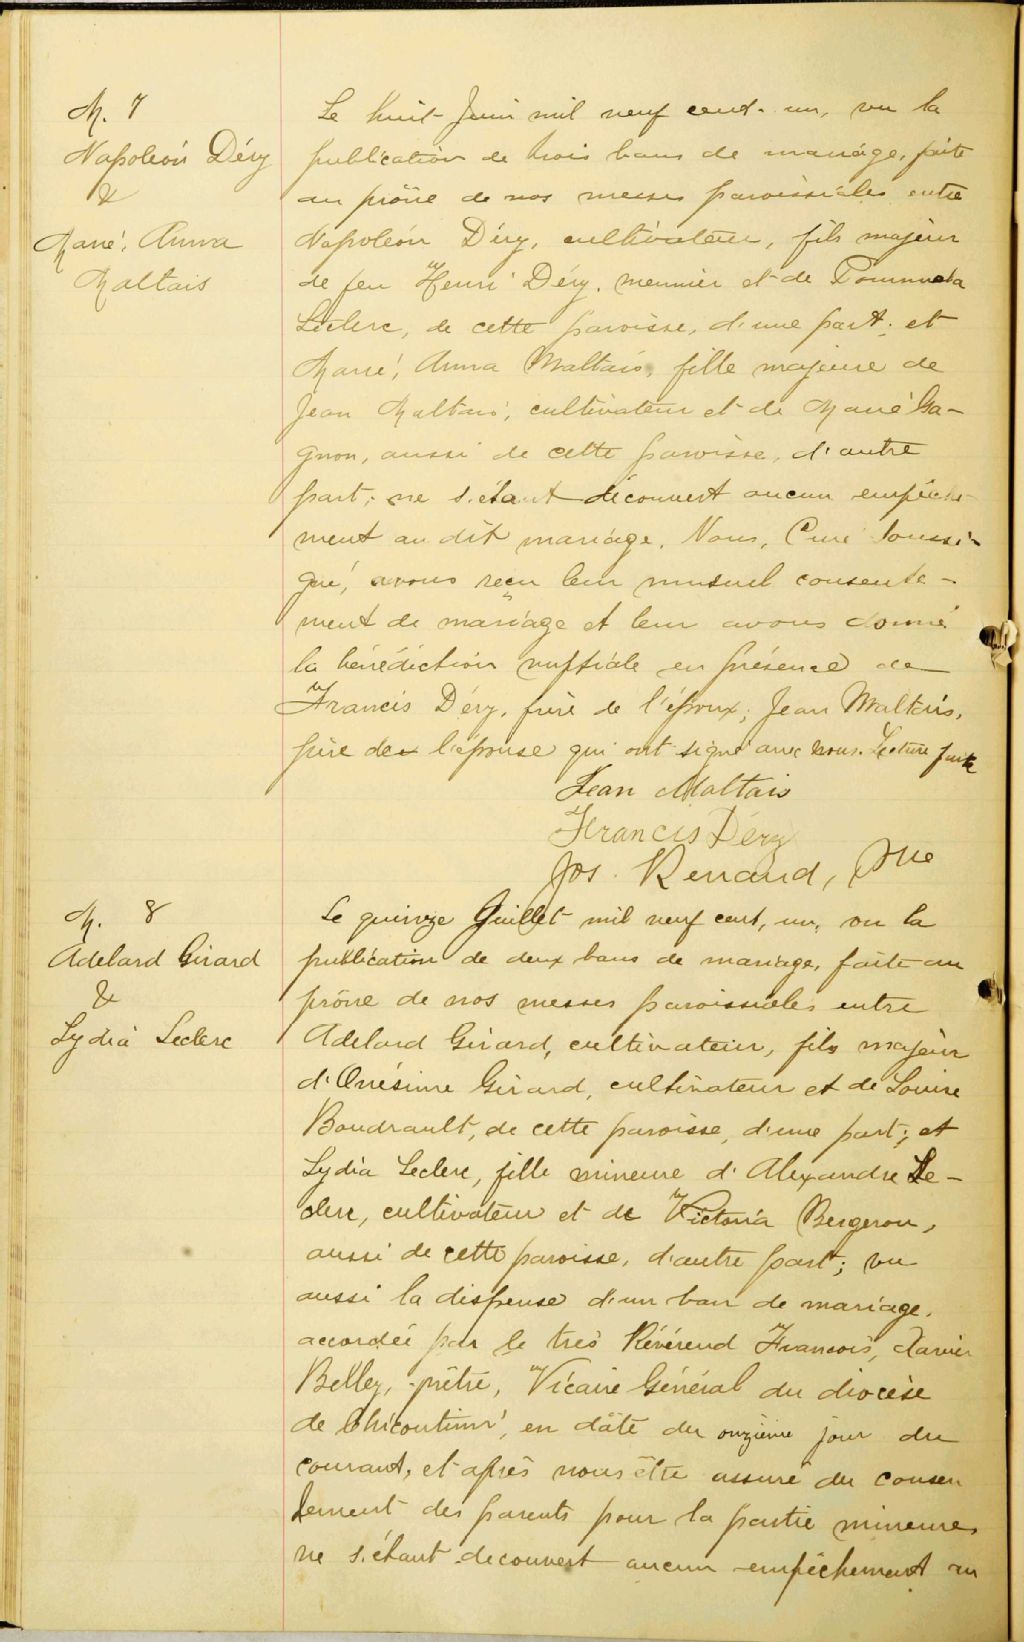 M. 7
Napoléon Déry
&
Marie, Anna
Maltais
Le huit Juin mil neuf cent un, vu la
publication de trois bans de mariage, faite
au prône de nos messes paroissiales entre
Napoléon Déry, cultivateur, fils majeur
de feu Henri Déry, meunier et de
Leclerc, de cette paroisse, d'une part; et
Marie, Anna Maltais, fille majeure de
Jean Maltais, cultivateur et de Marie Ga-
gnon, aussi de cette paroisse, d'autre
part; ne s'étant découvert aucun empêche-
ment au dit mariage. Nous, Curé soussi-
gné, avons reçu leur mutuel consente-
ment de mariage et leur avons donné
la bénédiction nuptiale en présence de
Francis Déry, frère de l'époux; Jean Maltais,
père de l'épouse qui ont signé avec nous. Lecture faite
Jean Maltais
Francis Déry
Jos. Renaud, Ptre
M. 8
Adelard Girard
&
Lydia Leclerc
Le quinze Juillet mil neuf cent, un, vu la
publication de deux bans de mariage, faite au
prône de nos messes paroissiales entre
Adelard Girard, cultivateur, fils majeur
d'Onésime Girard, cultivateur et de Louise
Boudrault, de cette paroisse, d'une part; et
Lydia Leclerc, fille mineure d'Alexandre Le-
clerc, cultivateur et de Victoria Bergeron,
aussi de cette paroisse, d'autre part; vu
aussi la dispense d'un ban de mariage,
accordée par le très Révérend Francois, Xavier
Belley, prêtre, Vicaire Général du diocèse
de Chicoutimi, en date du onzième jour du
courant, et après nous être assuré du consen
tement des parents pour la partie mineure,
ne s'étant decouvert aucun empêchement au